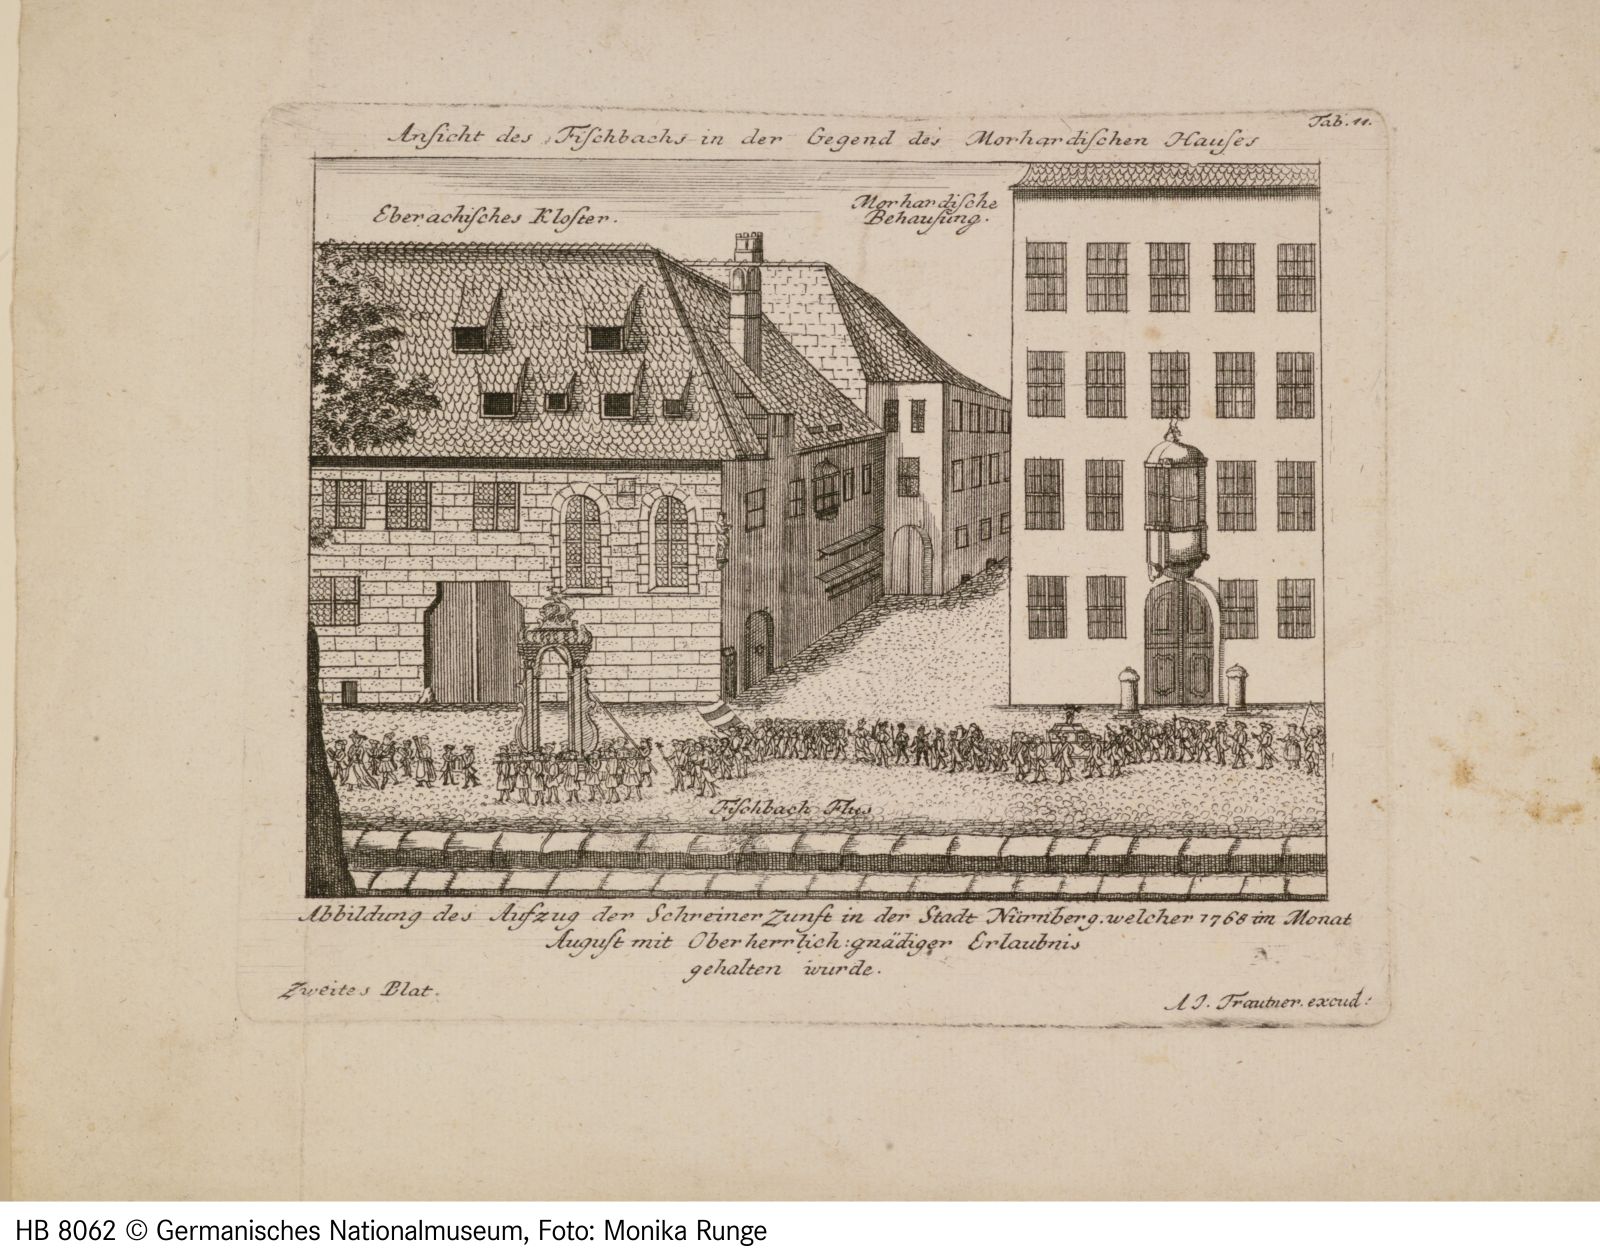 Tab. 11.
Ansicht des Fischbachs in der Gegend des Morhardischen Hauses
Eberachisches Kloster.
Morhardische
Behausung.
Fischbach Flus
Abbildung des Aufzug der Schreiner Zunft in der Stadt Nürnberg. welcher 1768 im Monat
August mit Oberherrlich: gnädiger Erlaubnis
gehalten wurde.
Zweites Blat.
A J. Trautner. excud:
HB 8062 © Germanisches Nationalmuseum, Foto: Monika Runge